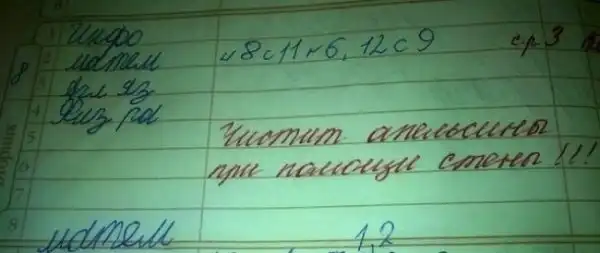 8
1 Инфо
2 матем 8 с 11 н 6, 12 с 9 ср 3
Ягл яз
4 Физ ра
5 Чистит апельсины
6 при помощи стены!!!
7
8
матем 1,2